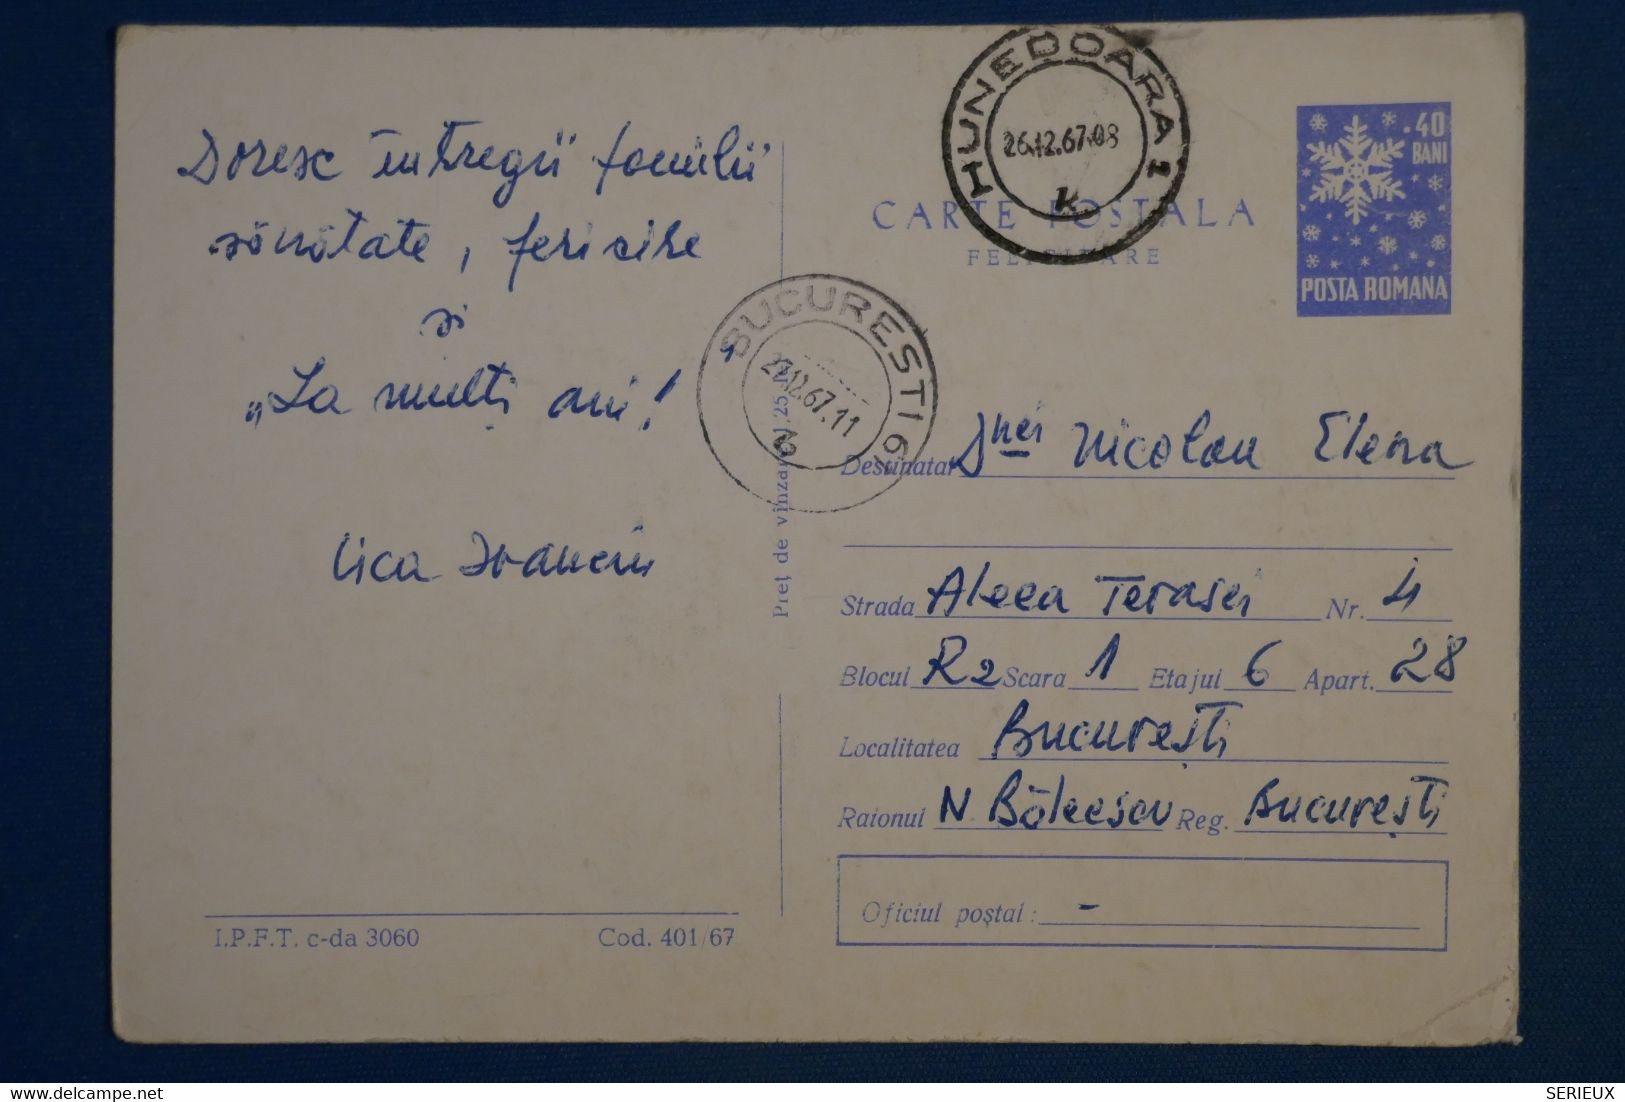 Doresc întregii familii
sănătate, fericire
și
„La mulți ani!
Lica
I.P.F.T. c-da 3060
Cod. 401/67
Preț de vînzare
HUNEDOARA 1
26.12.67.08
k
BUCURESTI 6
27.12.67.11
CARTE POSTALA
FELICITARE
.40
BANI
POSTA ROMANA
Destinatar Dnei Nicolau Elena
Strada Aleea Terasei Nr. 4
Blocul R2 Scara 1 Etajul 6 Apart. 28
Localitatea București
Raionul N. Bălcescu Reg. București
Oficiul poștal : -
SERIEUX